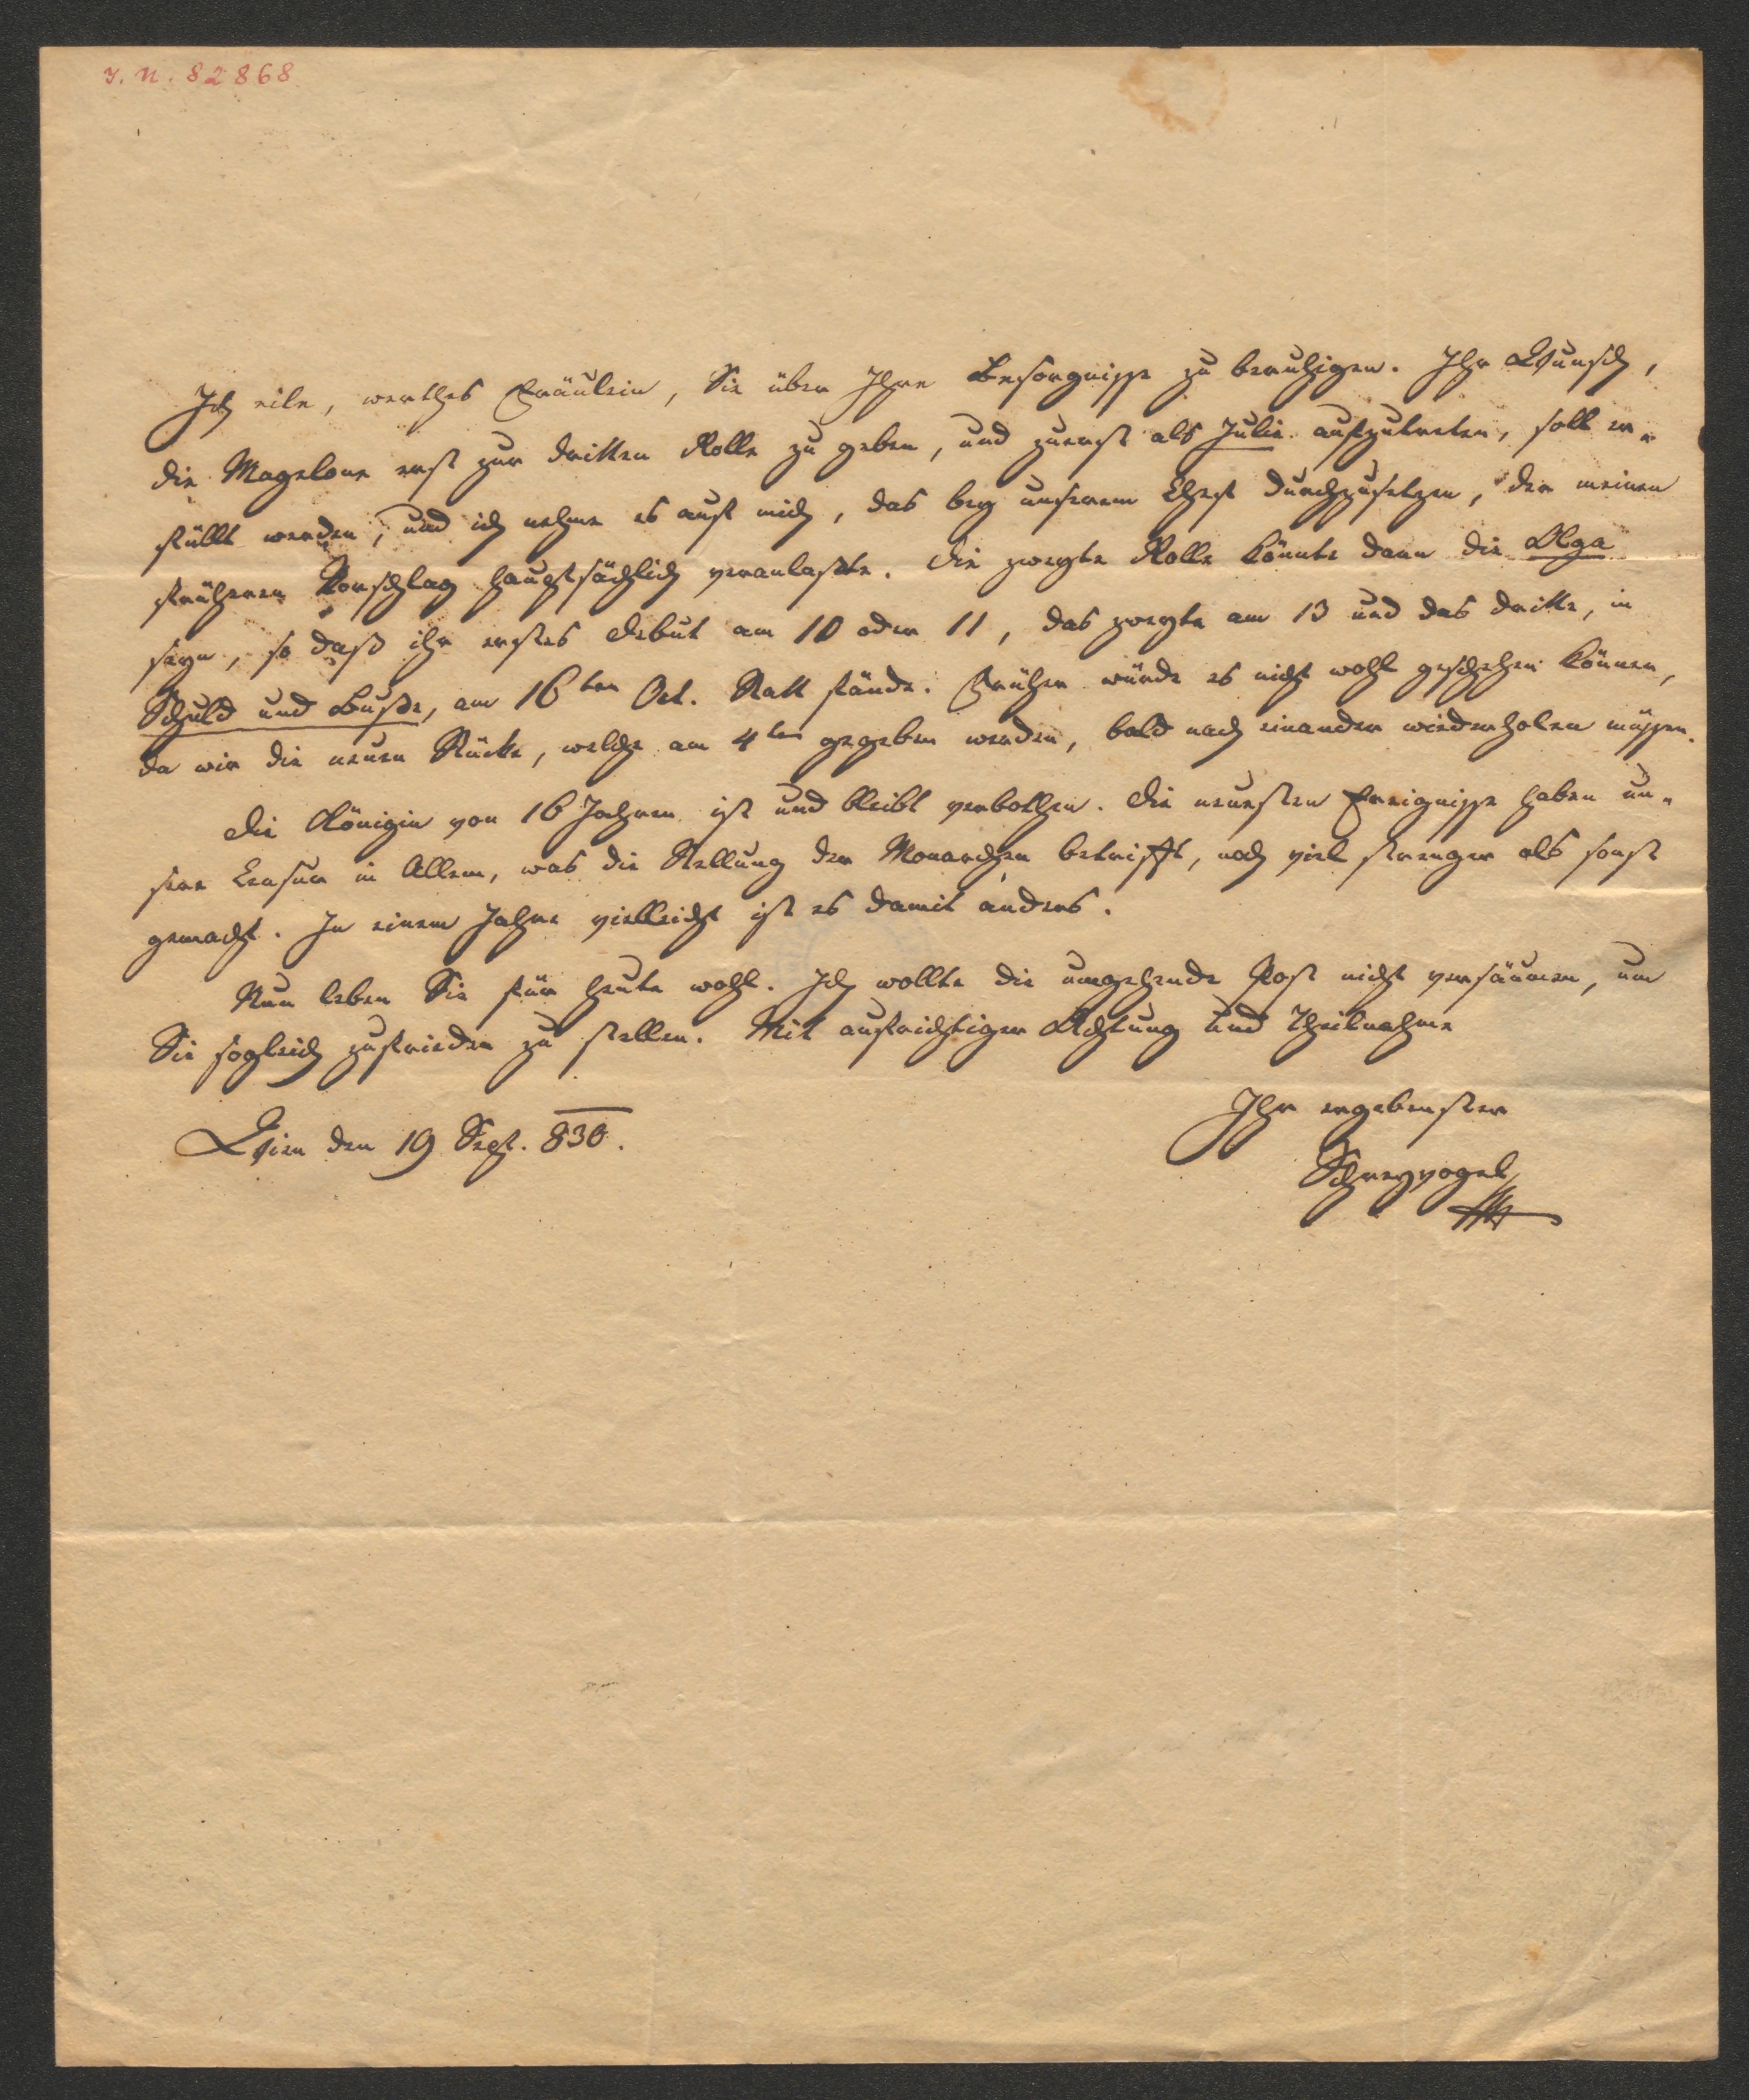 J. N. 82868
Ich eile, werthes Fräulein, Sie über Ihre Besorgnisse zu beruhigen. Ihr Wunsch,
die Magelone erst zur dritten Rolle zu geben, und zuerst als Julie aufzutreten, soll er-
füllt werden, und ich nehme es auf mich, das bey unserem Chef durchzusetzen, der meinen
früheren Vorschlag hauptsächlich veranlaßte. Die zweyte Rolle könnte dann die Olga
seyn, so daß ihr erstes Debut am 10 oder 11, das zweyte am 13 und das dritte, in
Schuld und Buße, am 16ten Oct. Statt fände. Früher würde es nicht wohl geschehen können,
da wir die neuen Stücke, welche am 4ten gegeben werden, bald nach einander wiederholen müssen.
Die Königin von 16 Jahren ist und bleibt verbothen. Die neuesten Ereignisse haben un-
sere Censur in Allem, was die Stellung der Monarchen betrifft, noch viel strenger als sonst
gemacht. In einem Jahre vielleicht ist es damit anders.
Nun leben Sie für heute wohl. Ich wollte die umgehende Post nicht versäumen, um
Sie sogleich zufrieden zu stellen. Mit aufrichtiger Achtung und Theilnahme
Ihr ergebenster
Wien den 19 Sept. 830.
Schreyvogel